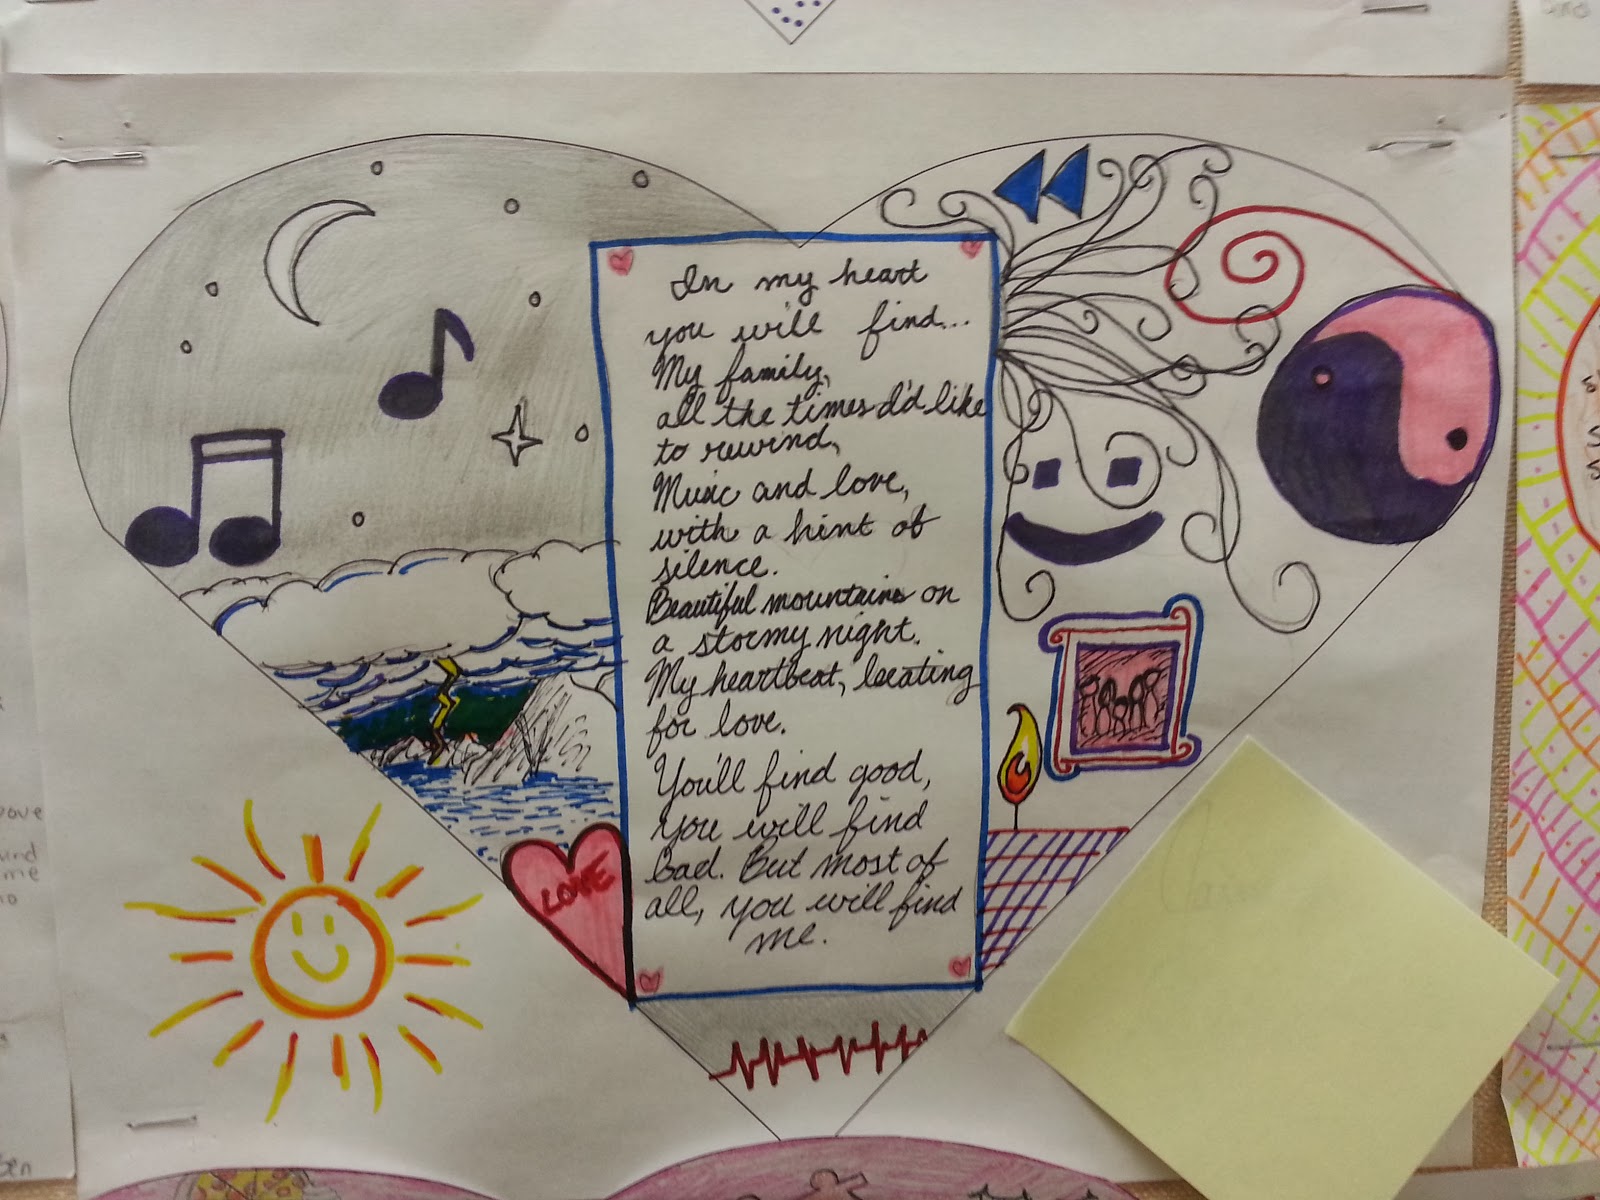 In my heart
you will find...
My family,
all the times I'd like
to rewind,
Music and love,
with a hint of
silence.
Beautiful mountains on
a stormy night.
My heartbeat, beating
for love.
You'll find good,
you will find
bad. But most of
all, you will find
me.
LOVE
me